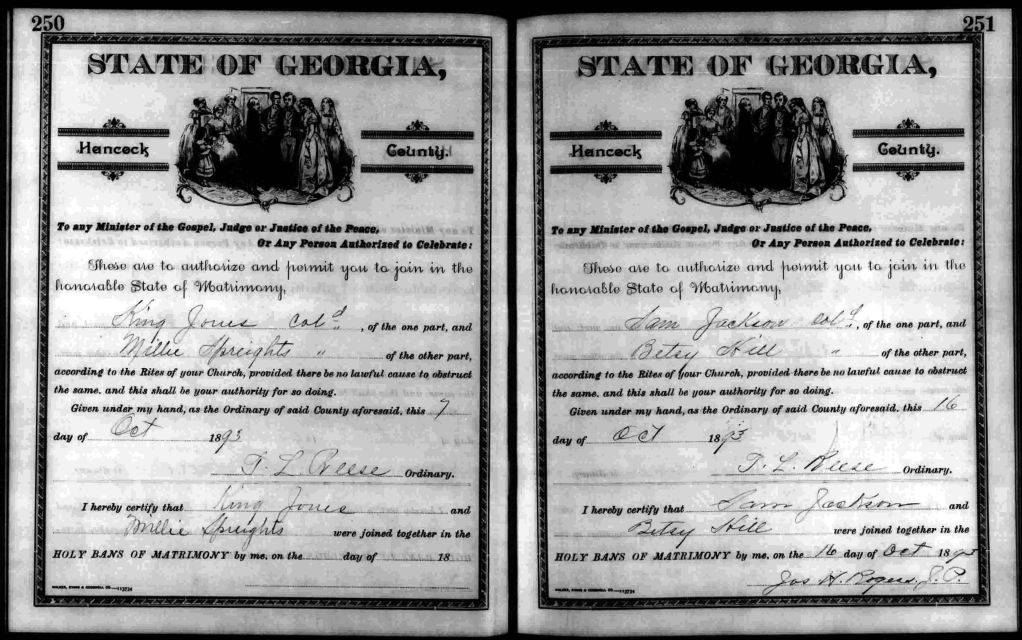 250
STATE OF GEORGIA,
Hancock County.
To any Minister of the Gospel, Judge or Justice of the Peace,
Or Any Person Authorized to Celebrate:
These are to authorize and permit you to join in the
honorable State of Matrimony,
King Jones col d , of the one part, and
Millie Spreights " of the other part,
according to the Rites of your Church, provided there be no lawful cause to obstruct
the same. and this shall be your authority for so doing.
Given under my hand, as the Ordinary of said County aforesaid, this 7
day of Oct 1893
T. L. Reese Ordinary.
I hereby certify that King Jones and
Millie Spreights were joined together in the
HOLY BANS OF MATRIMONY by me. on the day of 18
251
STATE OF GEORGIA,
Hancock County.
To any Minister of the Gospel, Judge or Justice of the Peace,
Or Any Person Authorized to Celebrate:
These are to authorize and permit you to join in the
honorable State of Matrimony,
Sam Jackson col d , of the one part, and
Betsy Hill " of the other part,
according to the Rites of your Church, provided there be no lawful cause to obstruct
the same. and this shall be your authority for so doing.
Given under my hand, as the Ordinary of said County aforesaid. this 16
day of Oct 1893
T. L. Reese Ordinary.
I hereby certify that Sam Jackson and
Betsy Hill were joined together in the
HOLY BANS OF MATRIMONY by me. on the 16 day of Oct 1893
Jos H. Rogers, J. P.